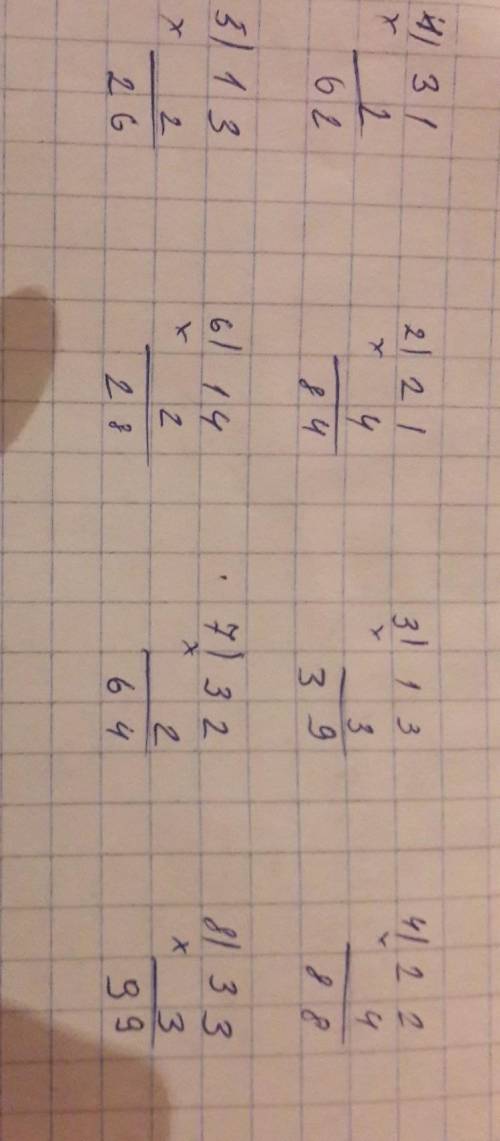 1) 31 2) 21 3) 13 4) 22
x 2 x 4 x 3 x 4
62 84 39 88
5) 13 6) 14 7) 32 8) 33
x 2 x 2 x 2 x 3
26 28 64 99